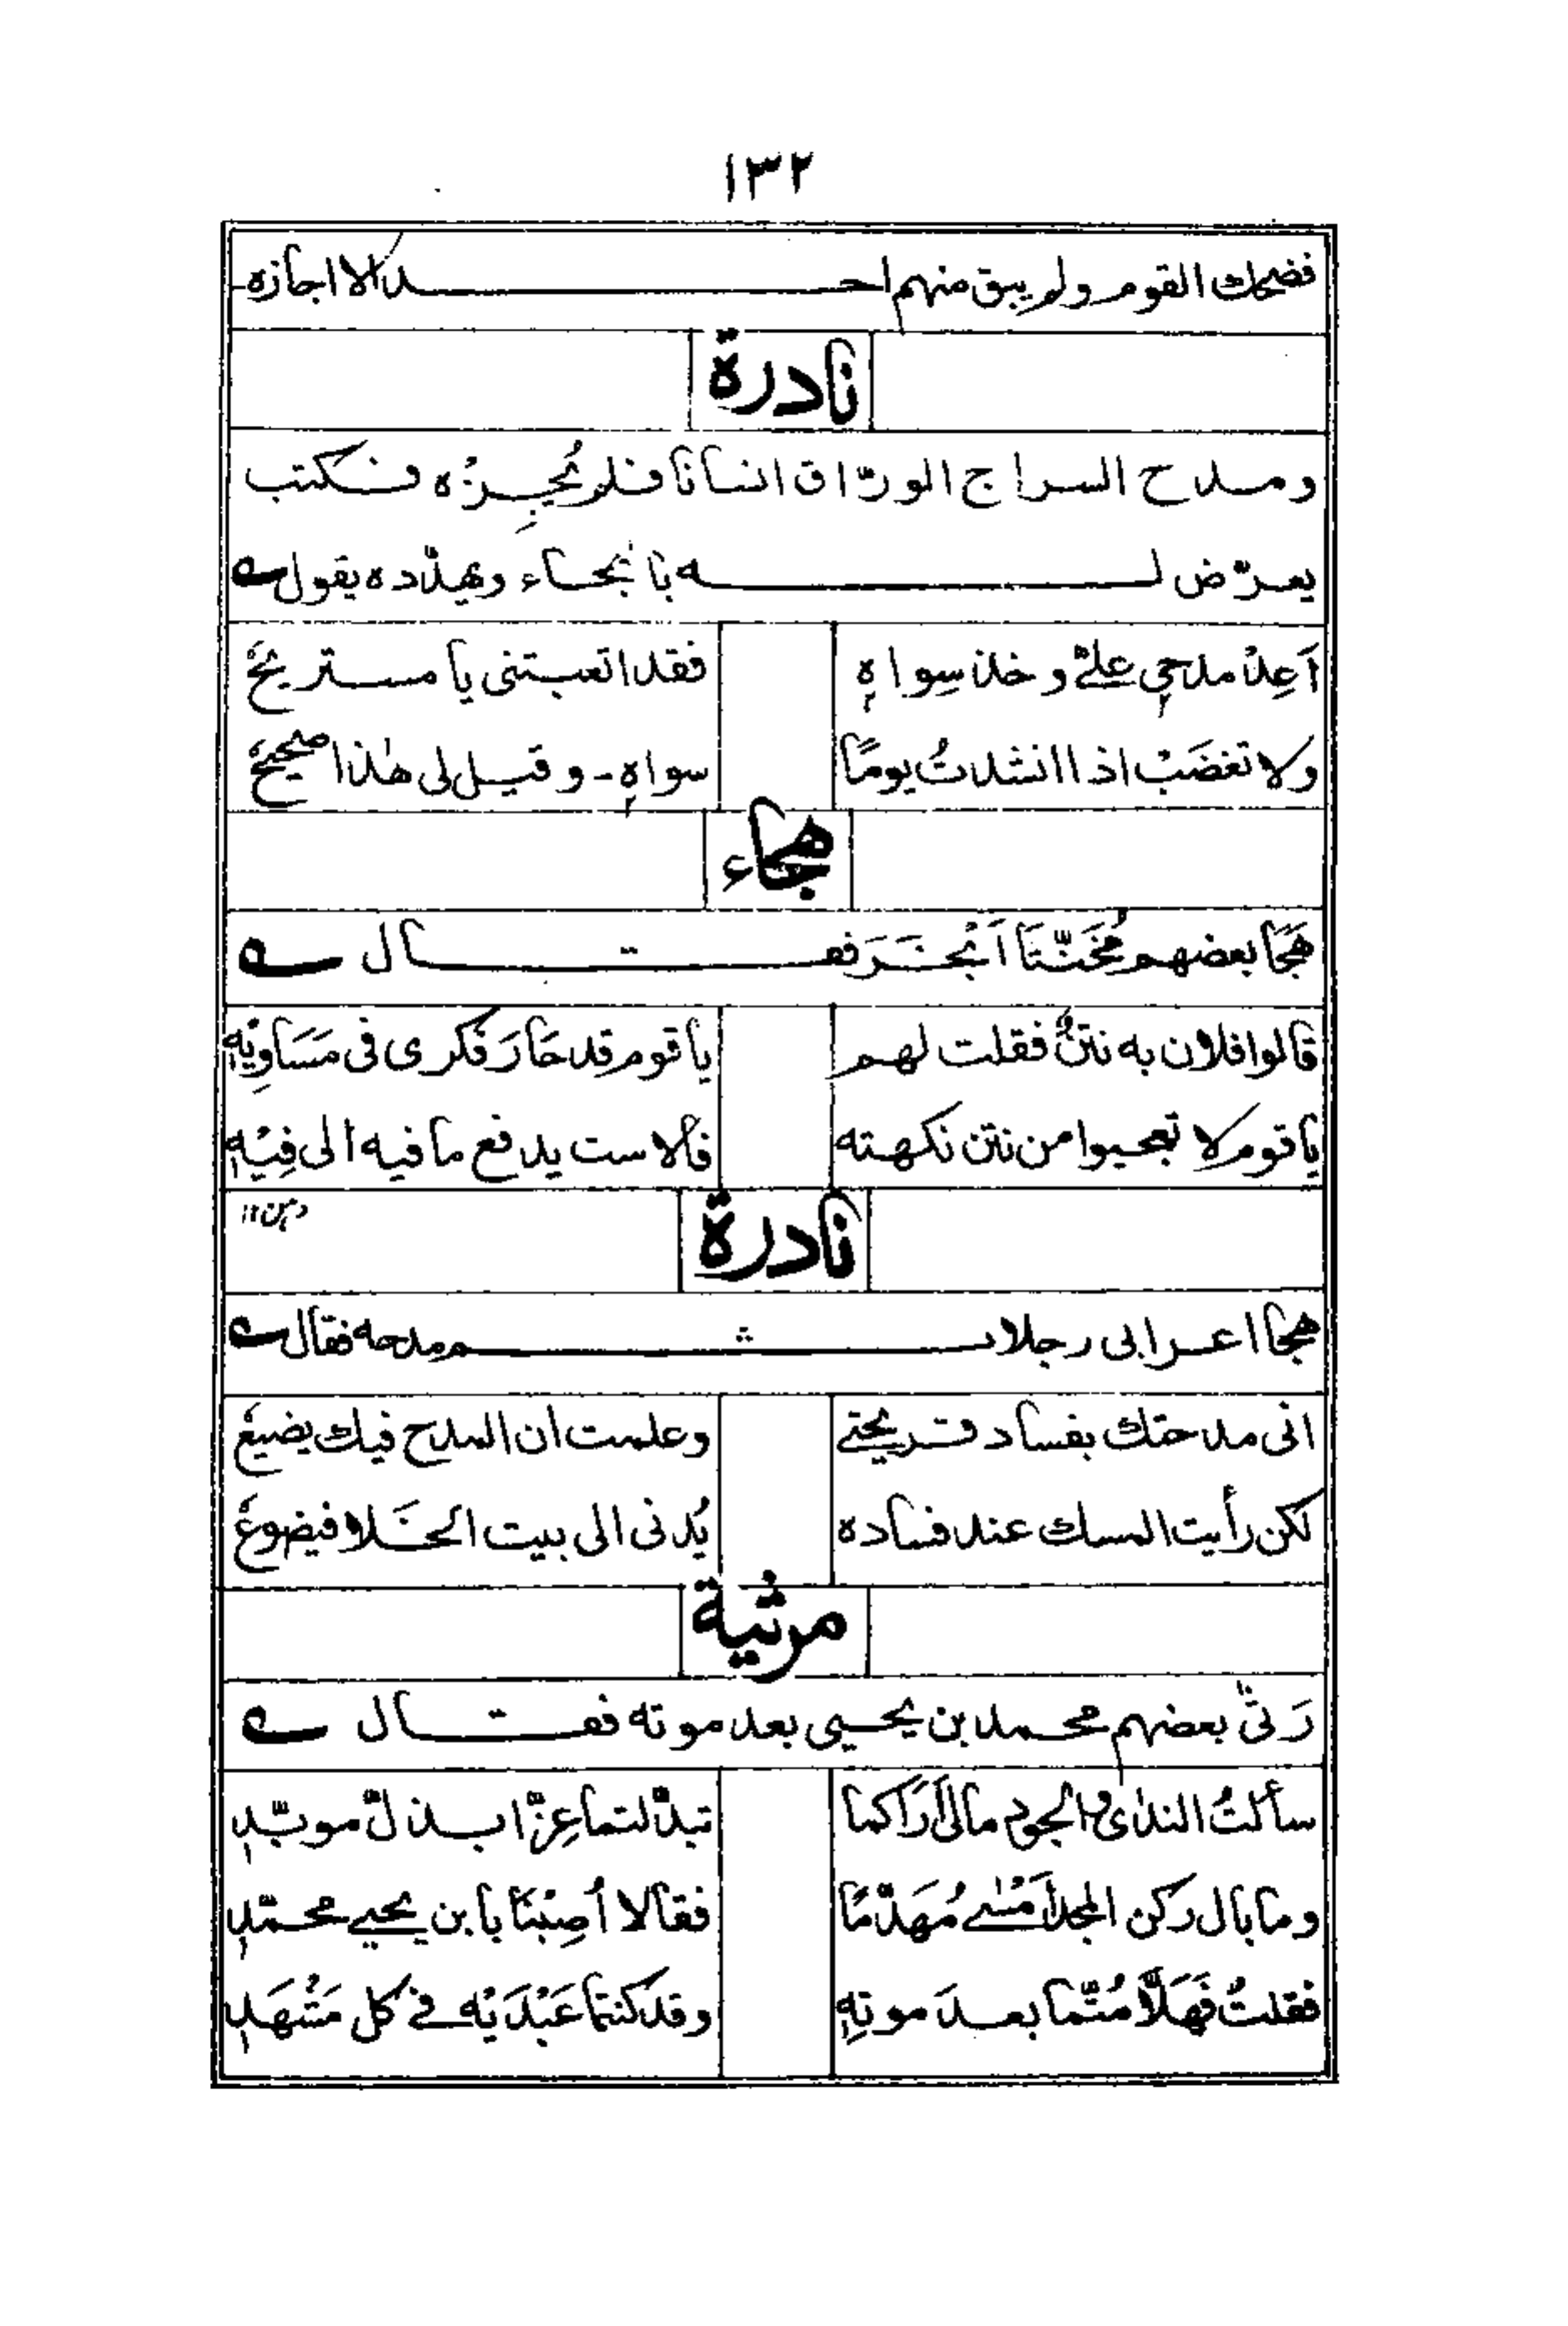 ١٣٢
فضحك القوم ولم يبق منهم احد الا اجازه-
نادرة
ومدح السراج الورّاق انسانا فلم يُجِزْه فكتب
يعرّض له بالهجاء ويهدّده يقول
اَعِدْ مدحي عليّ وخذ سِواهٖ فقد اتعبتنى يا مستريحُ
ولا تغضَبْ اذا انشدتُ يومًا سواهٖ - وقيل لى هٰذا صحيحُ
هجاء
هَجَا بعضهم مُخَنَّثًا اَبْخَرَ فقال
قالوا فلان به نتنٌ فقلت لهم يا قوم قد حَارَ فكرى فى مَسَاوِيْهٖ
يا قوم لا تعجبوا من نتن نكهته فالاست يدفع ما فيه الى فِيْهٖ
دہن ١٢
نادرة
هجا اعرابى رجلا ثم مدحه فقال
انى مدحتك بفساد قريحتي وعلمت ان المدح فيك يضيعُ
لكن رأيت المسك عند فساده يُدنى الى بيت الخَلا فيضوعُ
مرثية
رَثىٰ بعضهم محمد بن يحيى بعد موته فقال
سألتُ الندٰى والجود مالى اَرَاكما تبدّلتما عِزًّا بذلّ موبّدٖ
وما بال ركن المجد اَمْسٰى مُهَدَّمًا فقالا اُصِبْنَا بابن يحيي محمّدٖ
فقلتُ فَهَلَّا مُتّما بعدَ موتهٖ وقد كنتما عَبْدَيْه في كل مَشْهَدٖ